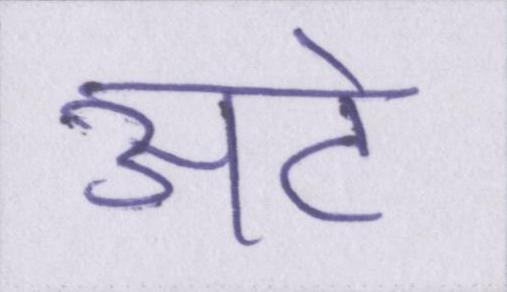 अटे